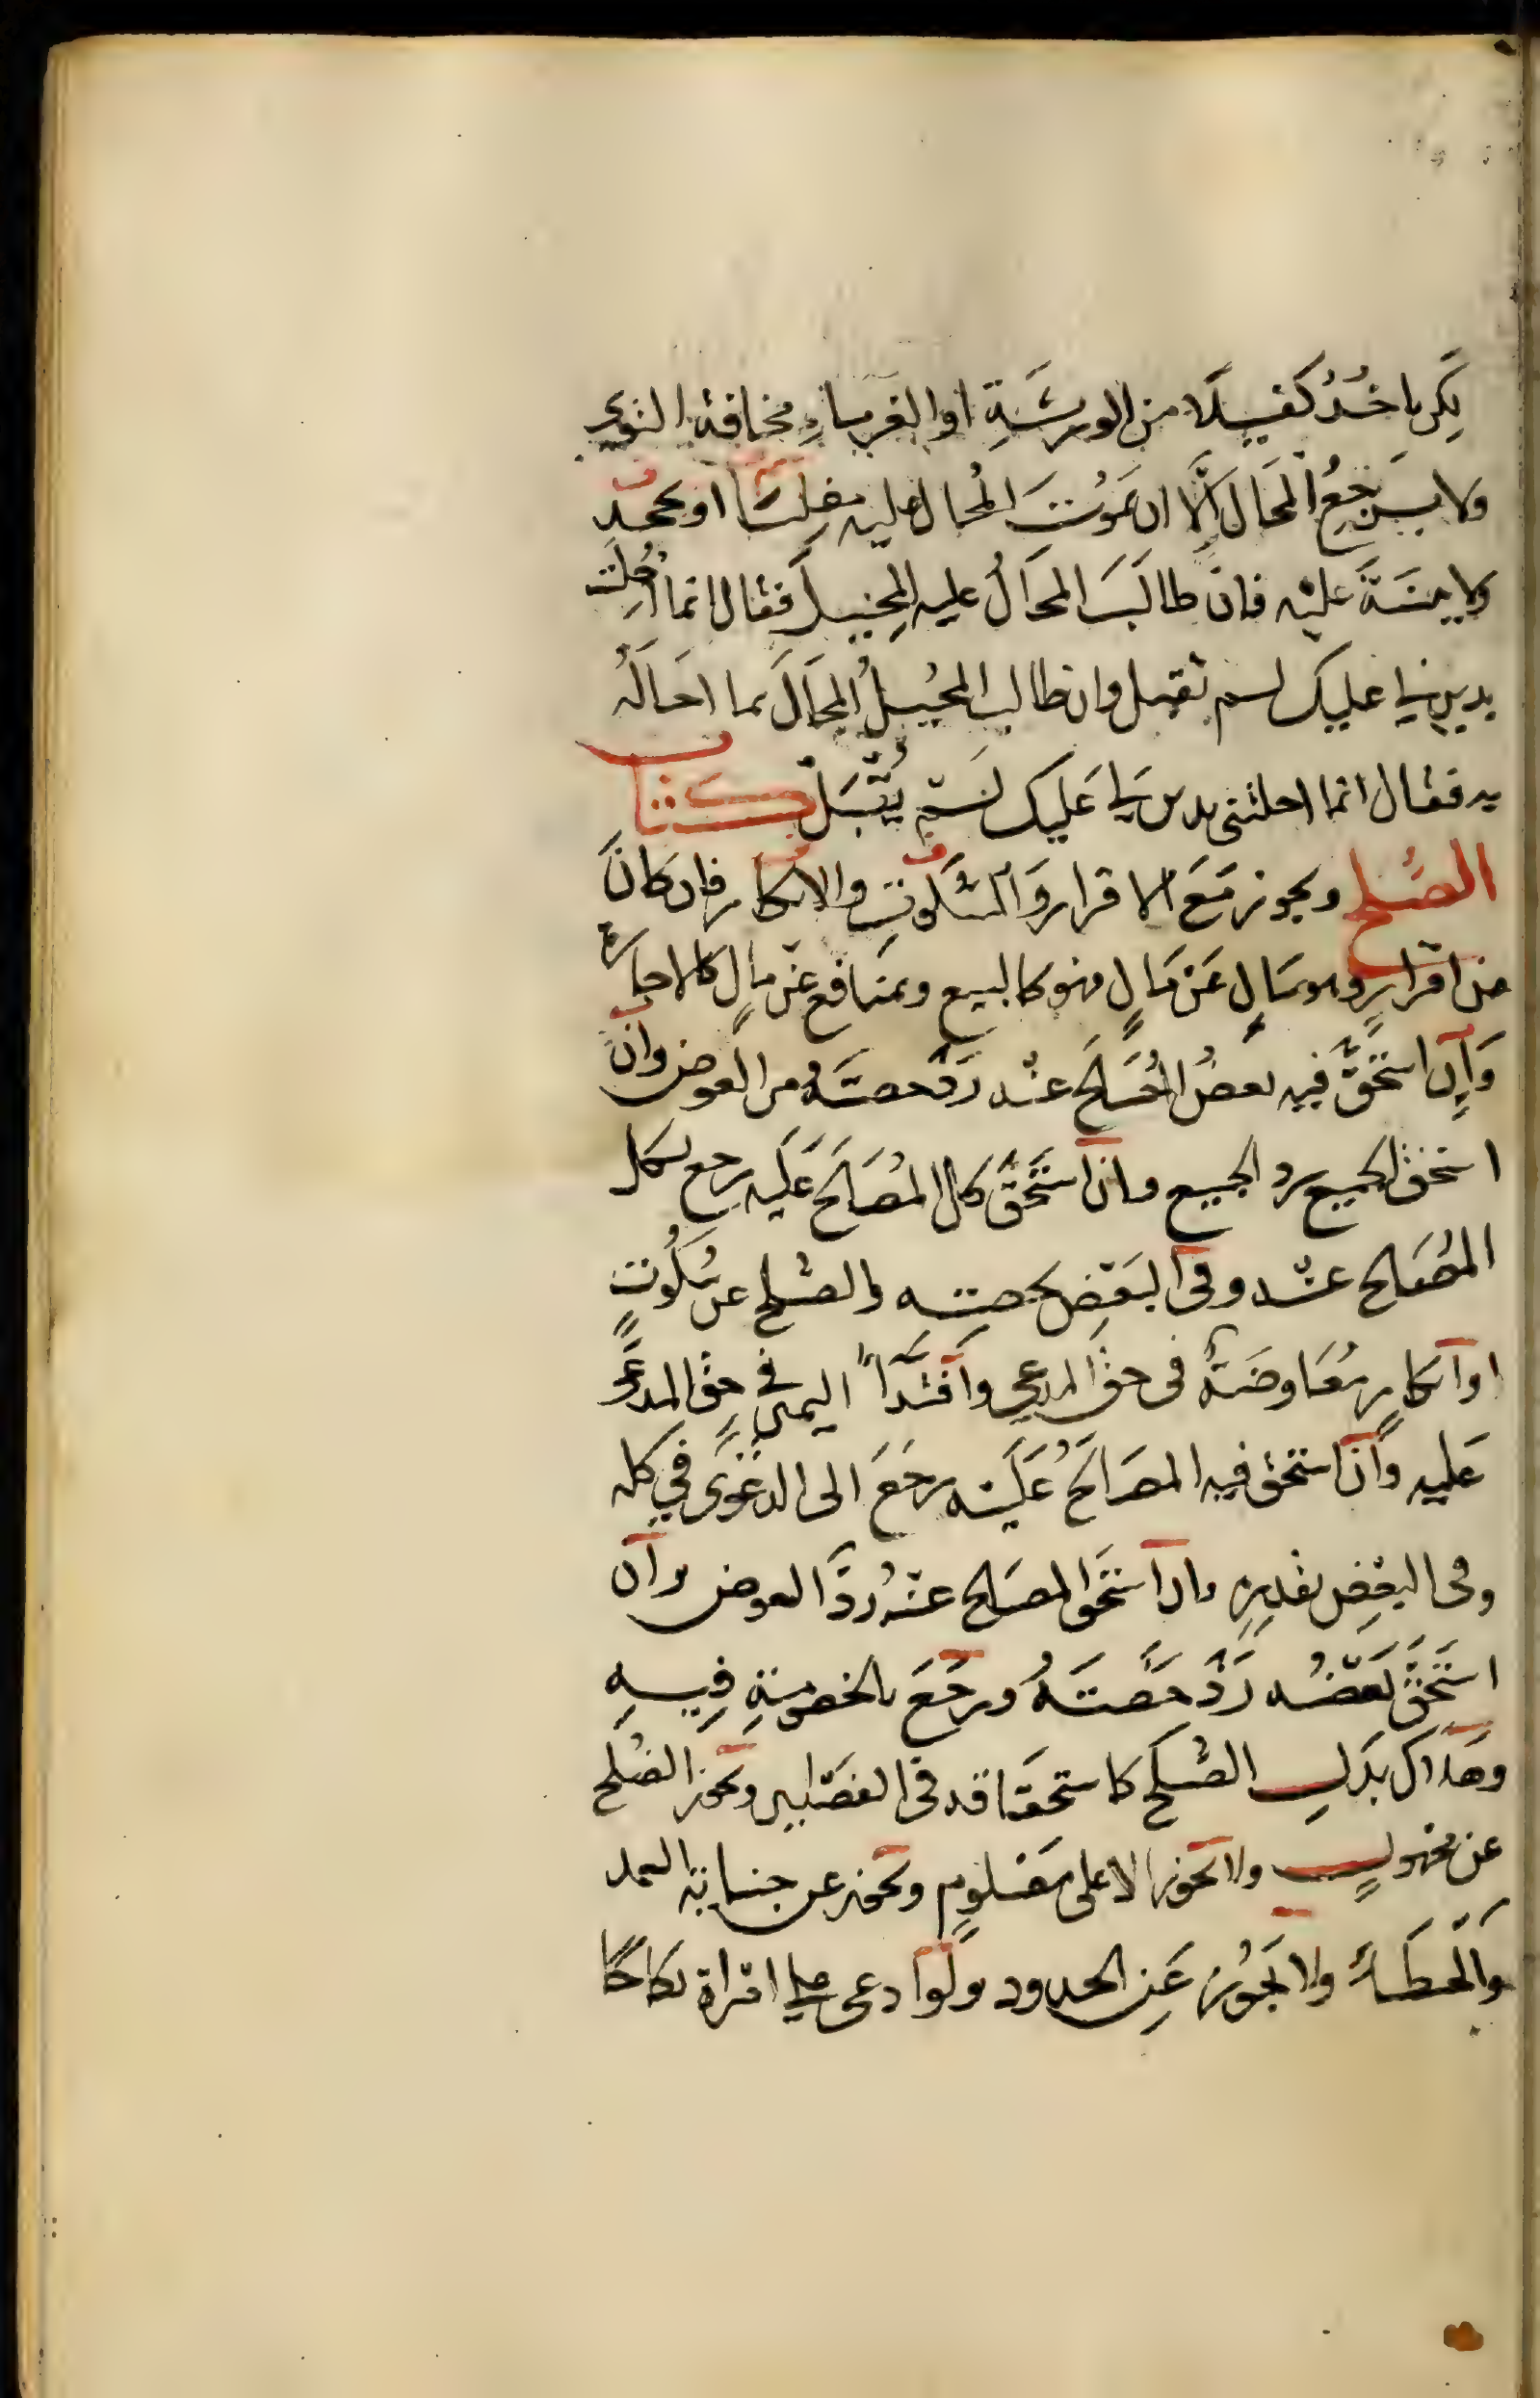 لكن ياخُذُ كفيلًا من الورثَةِ او الغرماءِ مخافة التوى
ولا يسترجعُ المحالُ اِلَّا ان يموُتَ المُحال عليه مفلسًا او يجحد
ولا بينَةَ عليْه فانْ طالَبَ المحَالُ عليه المحِيلَ فقال انما اَحَلْت
بدين لي عليك لم تقبل وان طالب المحُيلُ المحالَ بما احَالَهُ
به فقال انما احلتنى بدين لي عليك لم يُقبَلْ كتاب
الصُلح ويجوز مَعَ الاقرار والسُكوُتِ والانكار فان كانَ
عن اقرارٍ وهو بمَالٍ عَنْ مَالٍ فهو كالبيع وبمنَافع عنْ مالٍ كالاجارة
وَاِن استُحقَّ فيه بعضُ المُصَالَح عنْه ردَّ حصتَهُ من العوض وان
استحق الجميع رد الجميع وان اسْتُحقَّ كل المُصَالَح عَلَيه رجع بكل
المُصَالح عنْه وفى البَعْضِ بحصتِه والصُلح عن سُكُوتٍ
او انكارٍ مُعَاوضَةٌ فى حق المدعي وافتداءً اليمين في حقِ المدعَى
عليه وان استحق فيه المصَالَحُ عَليْه رجَعَ الى الدعْوَى في كله
وفى البعْضِ بقدرِهِ وان استحق المصَالح عنْهُ ردَّ العوض وان
استُحقَّ بَعضُه رَدَّ حصَّتَهُ ورجَعَ بالخصومةِ فِيهِ
وهَلاك بدَلِ الصُلحِ كاستحقاقه فى الفصْلين ويجوز الصُلح
عن مجهولٍ ولا يجوز الا على معْلومٍ ويجوز عن جناية العمد
والخطَأ ولا يجَوُز عَنِ الحدود ولو ادعى على امراة نكاحًا